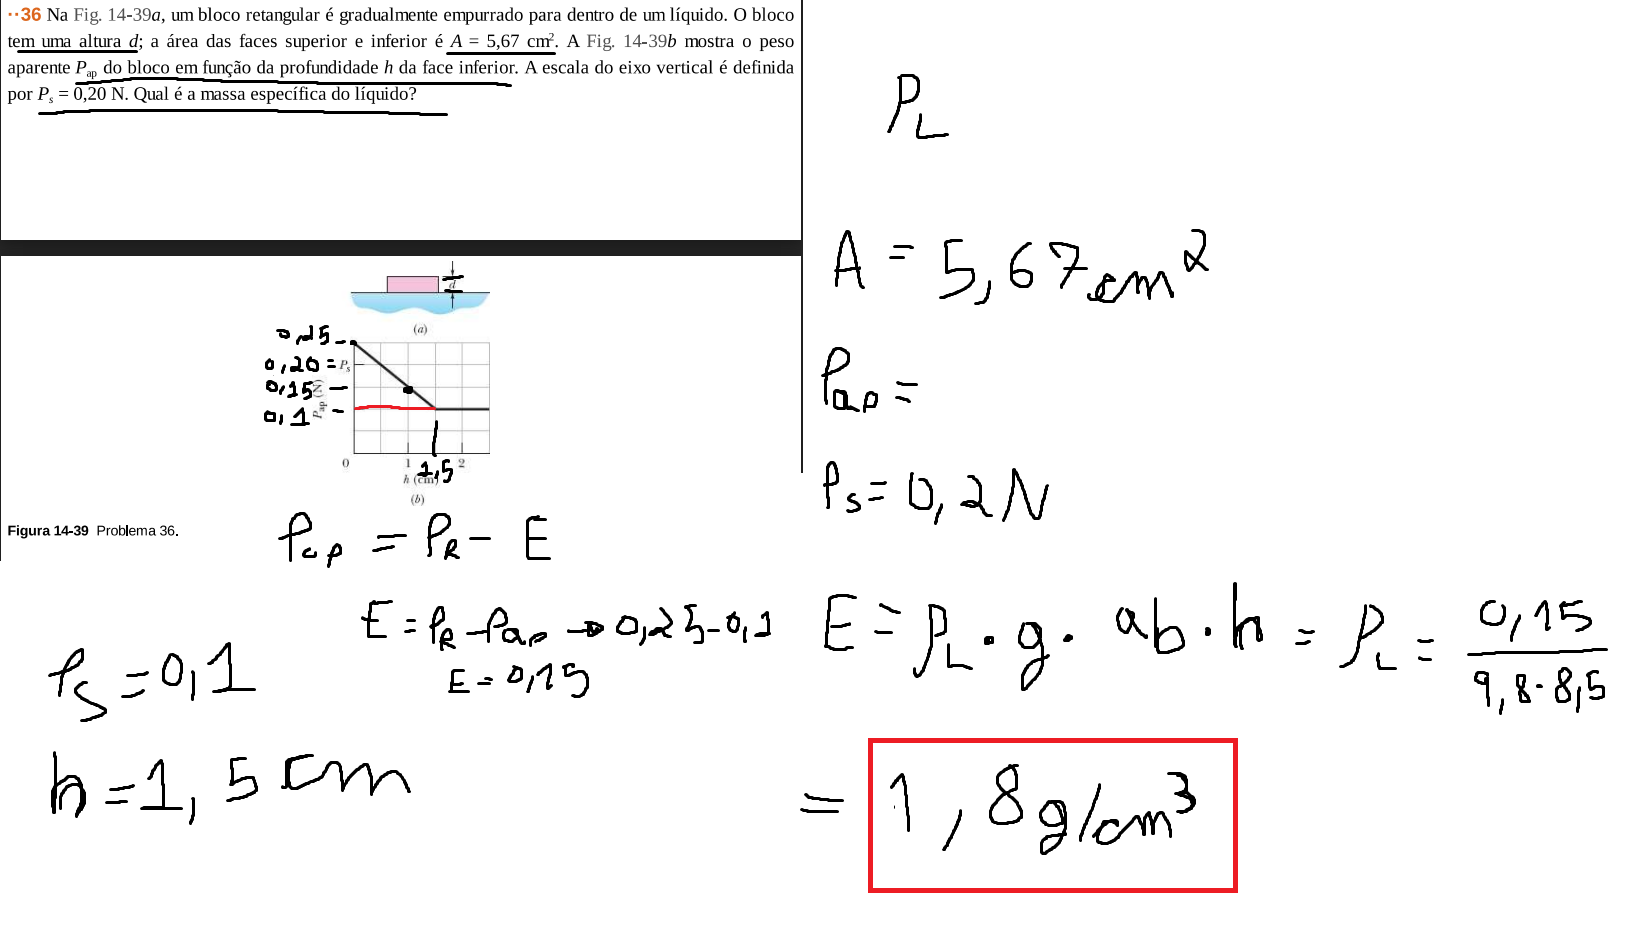 ··36 Na Fig. 14-39a, um bloco retangular é gradualmente empurrado para dentro de um líquido. O bloco
tem uma altura d; a área das faces superior e inferior é A = 5,67 cm². A Fig. 14-39b mostra o peso
aparente Pap do bloco em função da profundidade h da face inferior. A escala do eixo vertical é definida
por Ps = 0,20 N. Qual é a massa específica do líquido?
d
(a)
0,25
0,20 = Ps
0,15
0,1
Pap (N)
0 1 1,5 2
h (cm)
(b)
Figura 14-39 Problema 36.
Pap = PR - E
E = PR - Pap → 0,25 - 0,1
E = 0,15
Ps = 0,1
h = 1,5 cm
ρL
A = 5,67 cm²
Pap =
Ps = 0,2 N
E = ρL · g · ab · h = ρL = 0,15
9,8 · 8,5
= 1,8 g/cm³